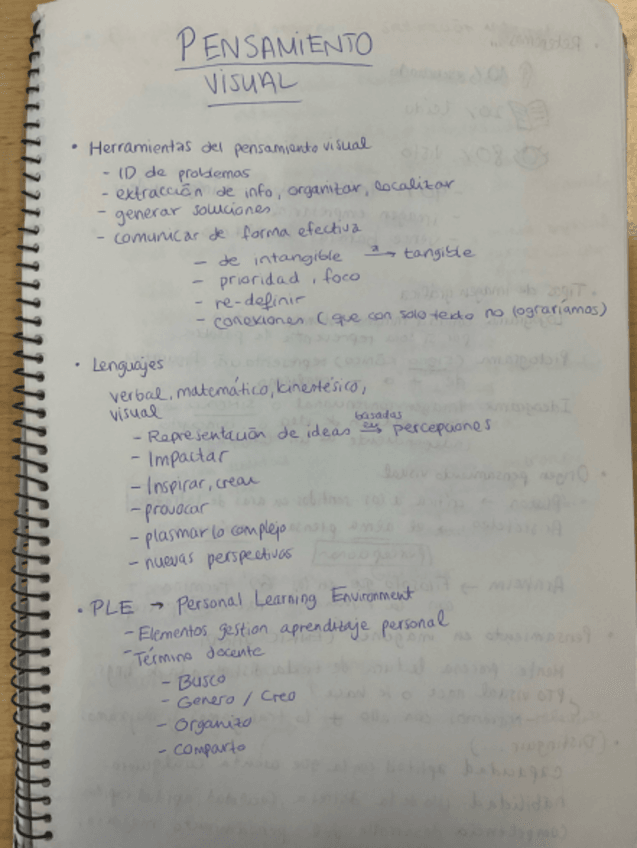 PENSAMIENTO
VISUAL
• Herramientas del pensamiento visual
- ID de problemas
- extracción de info, organizar, localizar
- generar soluciones
- comunicar de forma efectiva
- de intangible a→ tangible
- prioridad, foco
- re-definir
- conexiones (que con solo texto no lograriamos)
• Lenguajes
verbal, matemático, kinestésico,
visual
- Representación de ideas basadas en → percepciones
- Impactar
- Inspirar, crear
- provocar
- plasmar lo complejo
- nuevas perspectivas
• PLE → Personal Learning Environment
- Elementos gestion aprendizaje personal
- Término docente
- Busco
- Genero / Creo
- Organizo
- Comparto